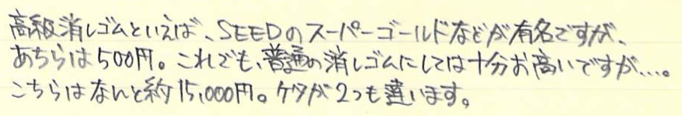 高級消しゴムといえば、SEEDのスーパーゴールドなどが有名ですが、
あちらは500円。これでも、普通の消しゴムにしては十分お高いですが…。
こちらはなんと約15,000円。ケタが2つも違います。